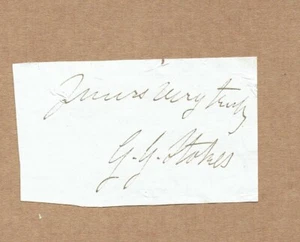 Yours very truly
G. G. Stokes